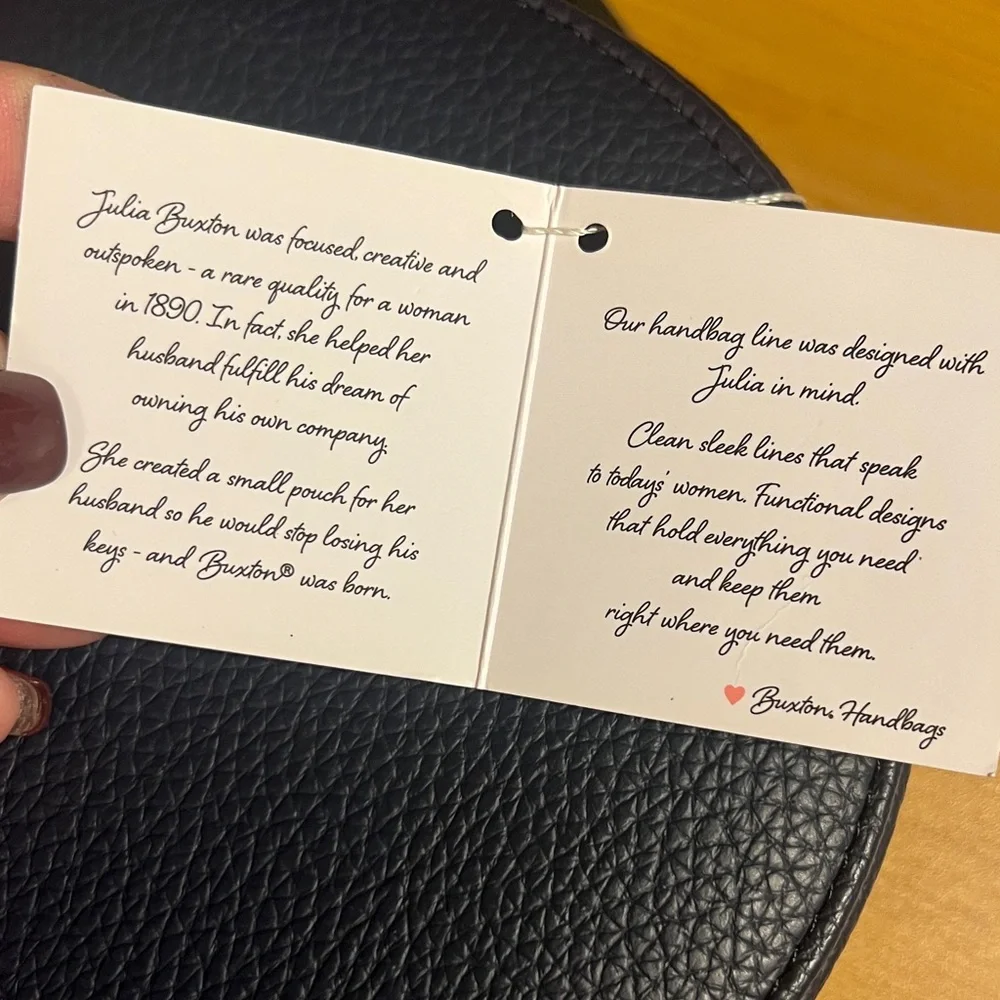 Julia Buxton was focused, creative and
outspoken - a rare quality for a woman
in 1890. In fact, she helped her
husband fulfill his dream of
owning his own company.
She created a small pouch for her
husband so he would stop losing his
keys - and Buxton® was born.
Our handbag line was designed with
Julia in mind.
Clean sleek lines that speak
to today's women. Functional designs
that hold everything you need
and keep them
right where you need them.
♥ Buxton® Handbags